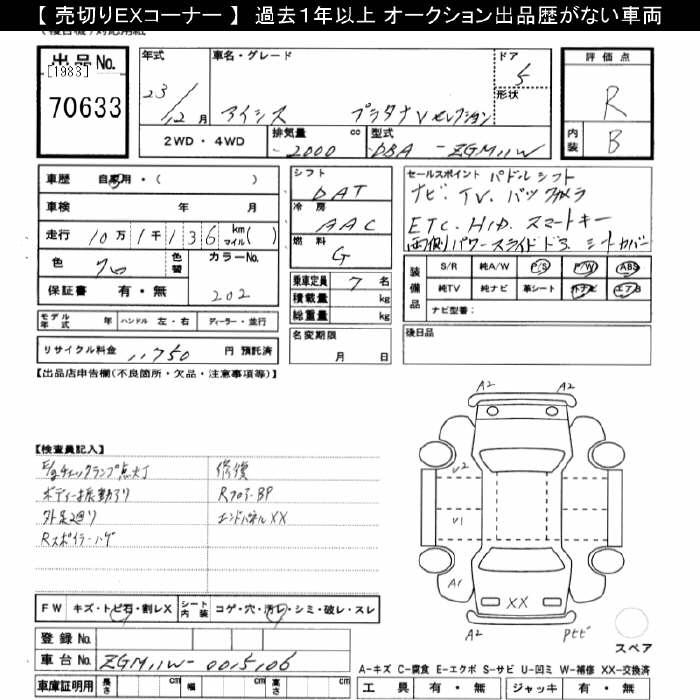 【 売切りEXコーナー 】 過去1年以上 オークション出品歴がない車両
出品 No.
[1983]
70633
年式
23/12月
車名・グレード
アイシス プラタナVセレクション
ドア
5
形状
評価点
R
内装
B
2WD ・ 4WD
排気量
2000 cc
型式
DBA - ZGM11W
車歴 自家用・( )
車検 年 月
走行 10万1千136 km マイル( )
色 クロ
色替
カラーNo.
202
保証書 有・無
シフト
DAT
冷房
AAC
燃料
G
乗車定員 7 名
積載量 kg
総重量 kg
セールスポイント パドルシフト
ナビ. TV. バックカメラ
ETC. HID. スマートキー
両側パワースライドドア シートカバー
装備品
S/R 純A/W P/S P/W ABS
純TV 純ナビ 革シート 外ナビ エアB
ナビ型番:
モデル年式 年 ハンドル 左・右 ディーラー・並行
リサイクル料金 11750 円 預託済
名変期限
月 日
後日品
【出品店申告欄(不良箇所・欠品・注意事項等)】
【検査員記入】
E/gチェックランプ点灯
ボディー振動アリ
外足廻り
Rスポイラーハゲ
修復
RフロアーBP
エンドパネルXX
A2 A2
U2
U1
A1
XX
A2
Pセビ
スペア
FW キズ・トビ石・割レX
シート内装 コゲ・穴・汚レ・シミ・破レ・スレ
登録 No.
車台 No. ZGM11W-0015106
車庫証明用 長さ cm 幅 cm 高さ cm
A-キズ C-腐食 E-エクボ S-サビ U-凹ミ W-補修 XX-交換済
工具 有・無 ジャッキ 有・無